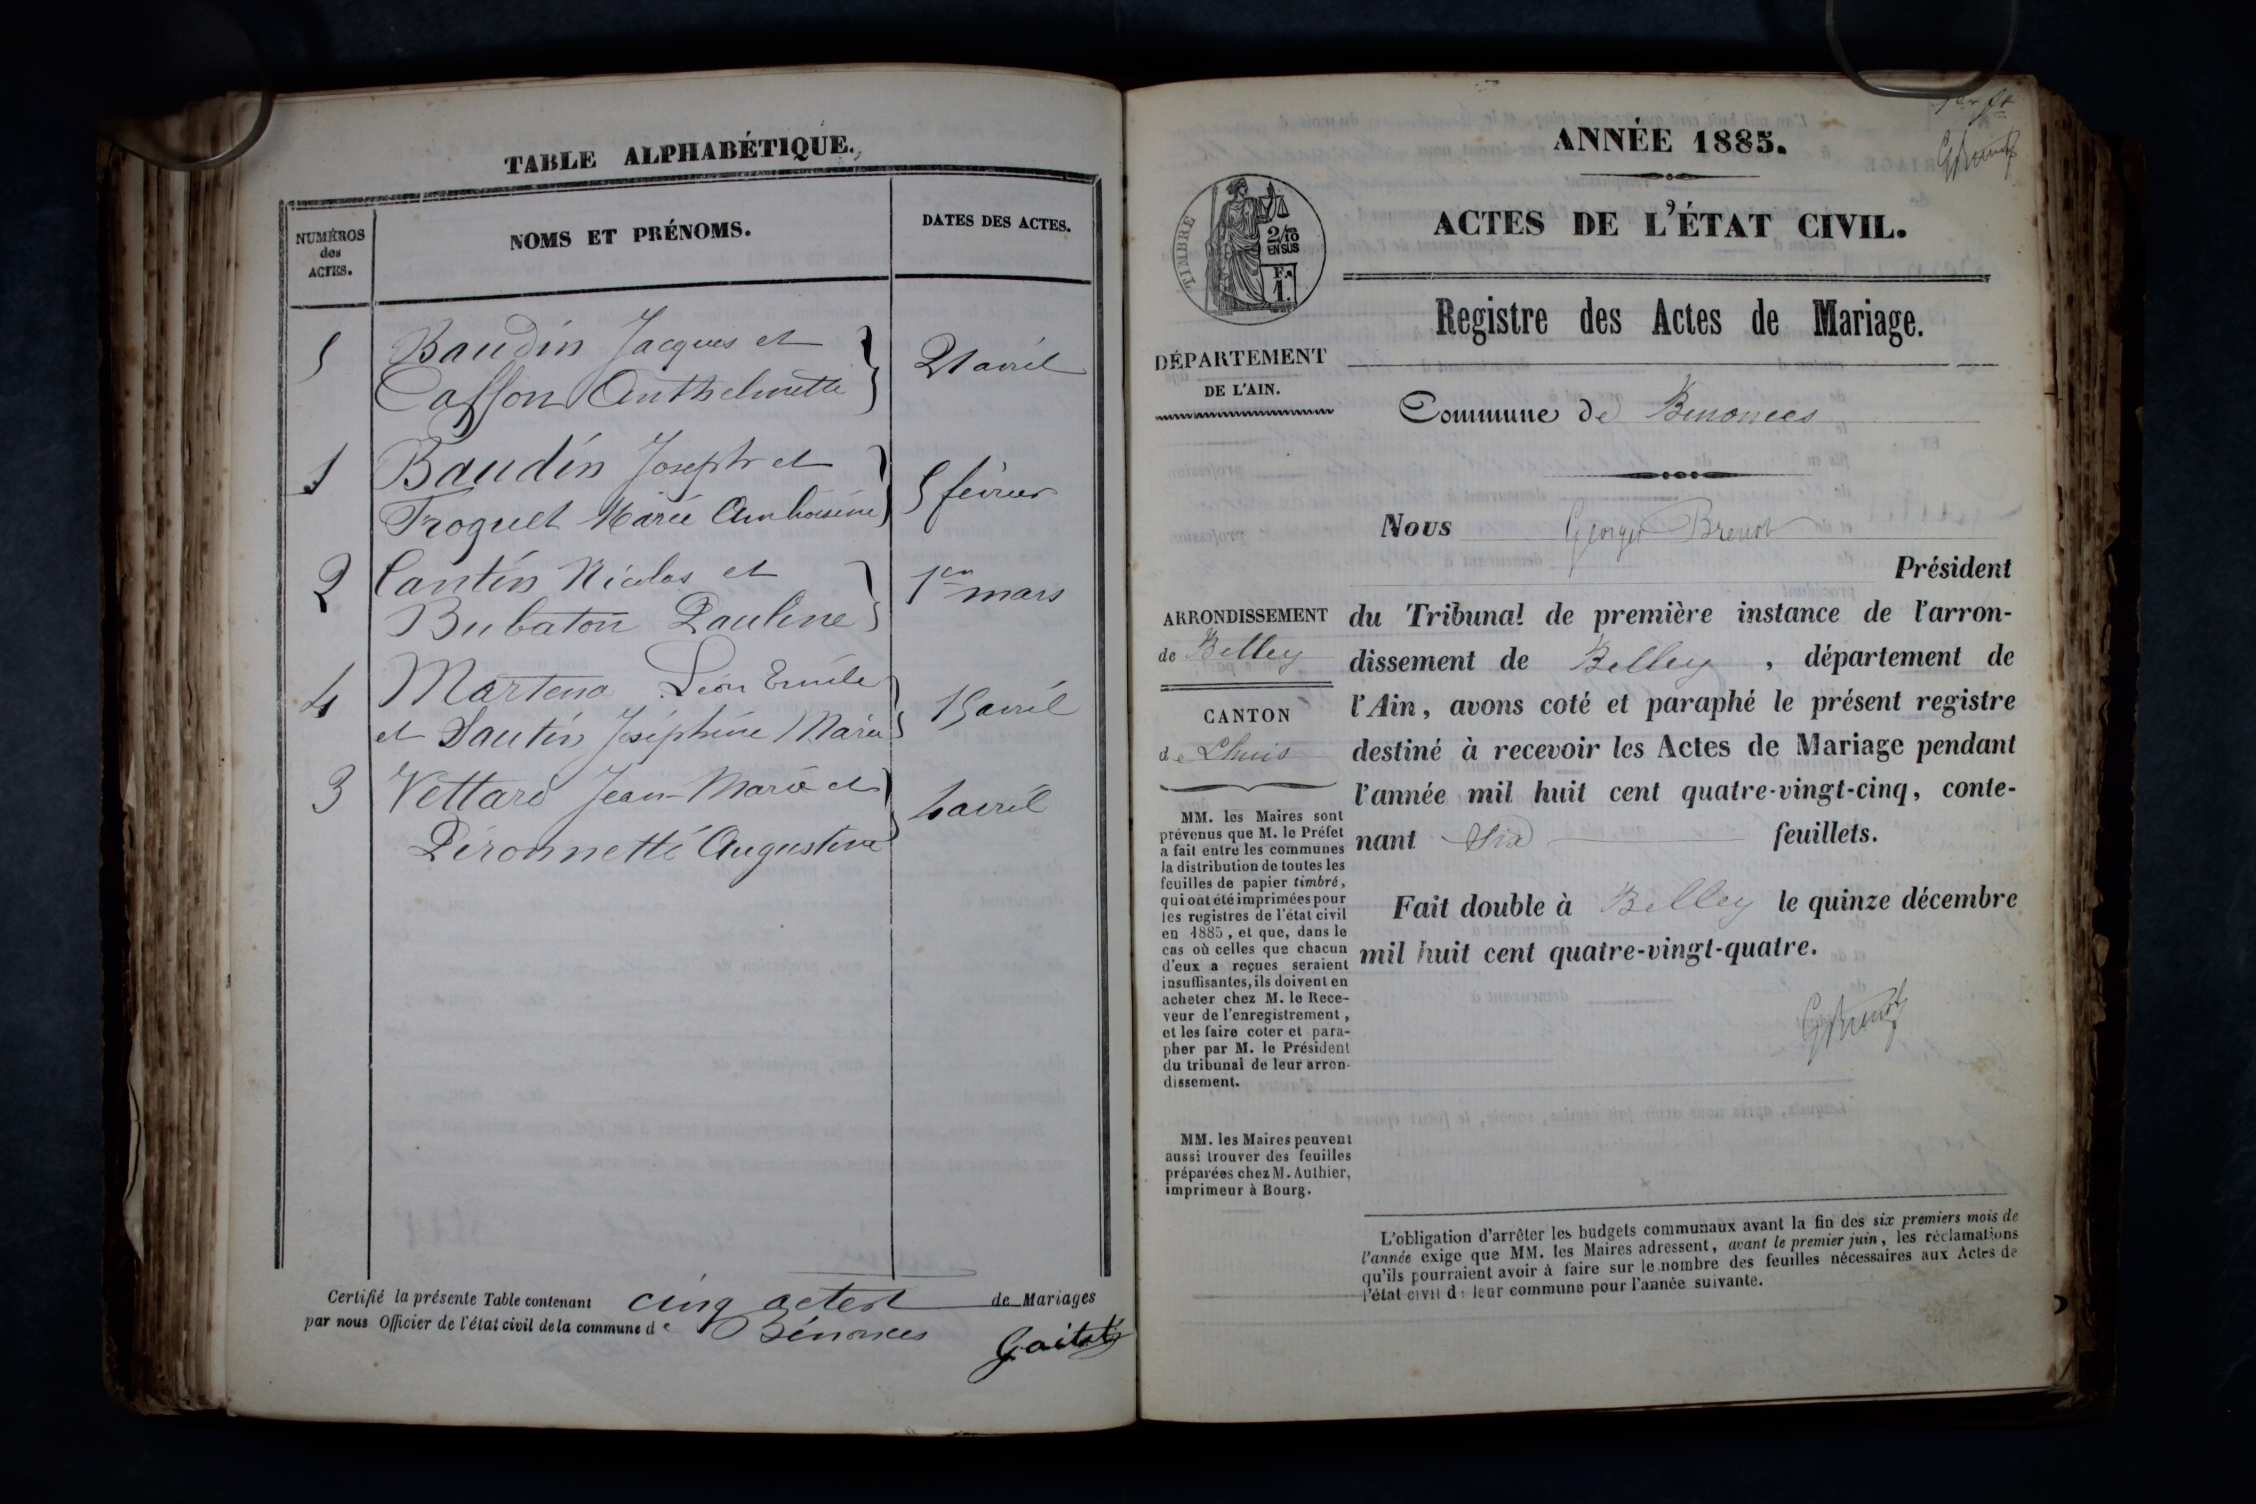 TABLE ALPHABÉTIQUE.
NUMÉROS
des
ACTES.
NOMS ET PRÉNOMS.
DATES DES ACTES.
5
Baudin Jacques et
Casson Anthelmette
21 avril
1
Baudin Joseph et
Troquet Marie Ambroisine
5 février
2
Cantin Nicolas et
Bubaton Pauline
1er mars
4
Martena Léon Emile
et Sautin Joséphine Marie
15 avril
3
Vettard Jean-Marie et
Péronnette Augustine
4 avril
Certifié la présente Table contenant cinq actes de Mariages
par nous Officier de l'état civil de la commune de Bénonces
ANNÉE 1885.
ACTES DE L'ÉTAT CIVIL.
TIMBRE
2/10
EN SUS
F.
1.
Registre des Actes de Mariage.
DÉPARTEMENT
DE L'AIN.
Commune de Benonces
Nous Georges Brenot
Président
ARRONDISSEMENT
de Belley
CANTON
de Lhuis
du Tribunal de première instance de l'arron-
dissement de Belley, département de
l'Ain, avons coté et paraphé le présent registre
destiné à recevoir les Actes de Mariage pendant
l'année mil huit cent quatre-vingt-cinq, conte-
nant six feuillets.
Fait double à Belley le quinze décembre
mil huit cent quatre-vingt-quatre.
MM. les Maires sont
prévenus que M. le Préfet
a fait entre les communes
la distribution de toutes les
feuilles de papier timbré,
qui ont été imprimées pour
les registres de l'état civil
en 1885, et que, dans le
cas où celles que chacun
d'eux a reçues seraient
insuffisantes, ils doivent en
acheter chez M. le Rece-
veur de l'enregistrement,
et les faire coter et para-
pher par M. le Président
du tribunal de leur arron-
dissement.
MM. les Maires peuvent
aussi trouver des feuilles
préparées chez M. Authier,
imprimeur à Bourg.
L'obligation d'arrêter les budgets communaux avant la fin des six premiers mois de
l'année exige que MM. les Maires adressent, avant le premier juin, les réclamations
qu'ils pourraient avoir à faire sur le nombre des feuilles nécessaires aux Actes de
l'état civil de leur commune pour l'année suivante.